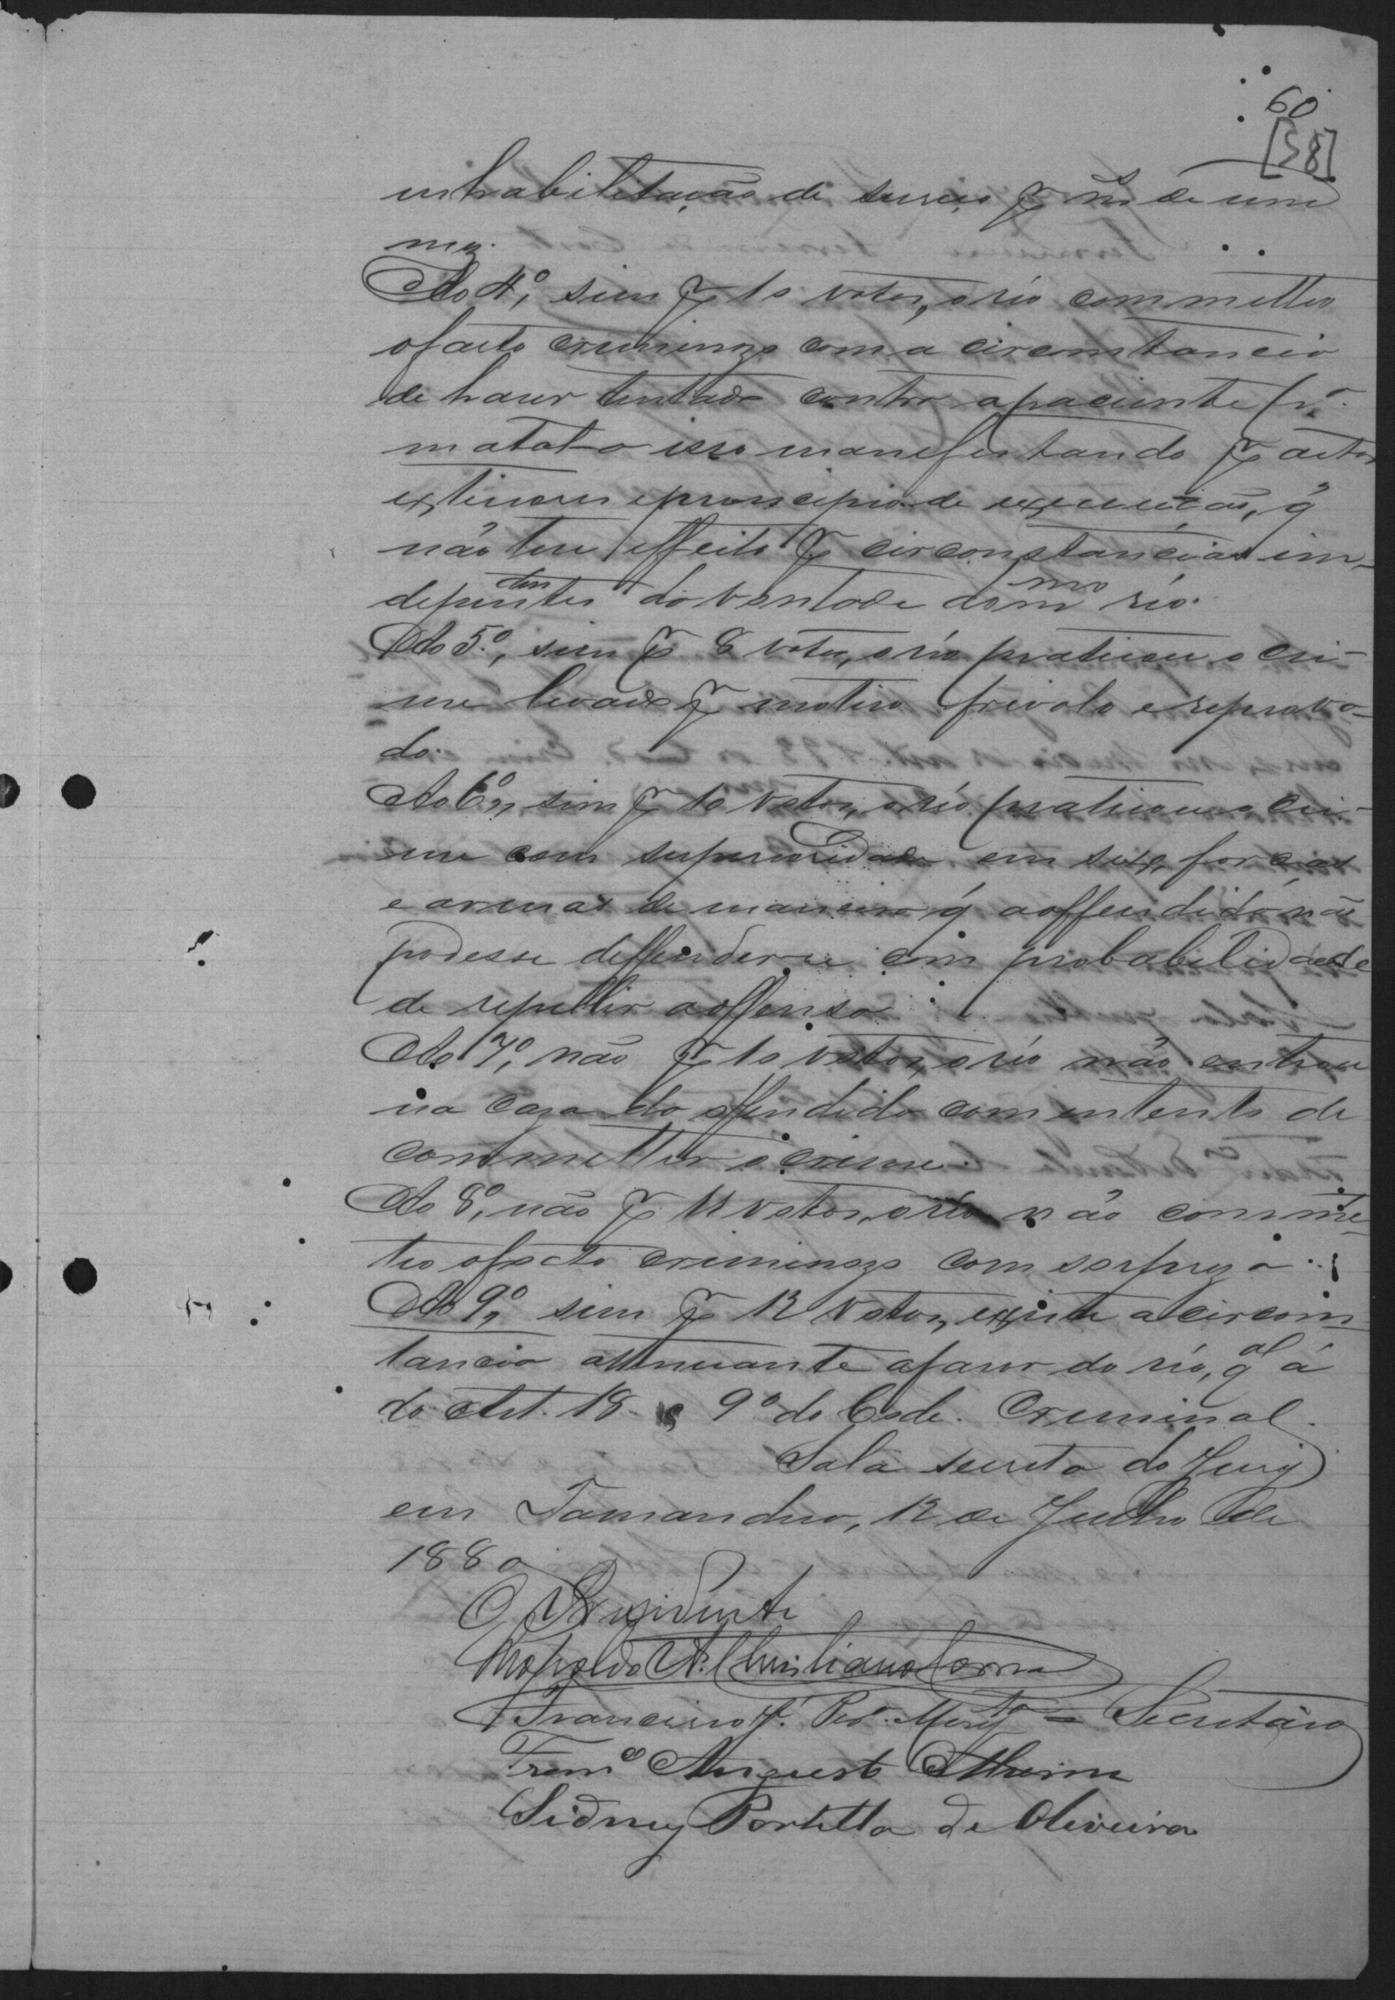 60
[58]
inhabilitação de serviço p mais de um
mez.
Ao 4º, sim p 10 votos, o réo commetteo
o facto criminozo com a circomstancia
de haver tentado contra a paciente pª
matal-o isso manefestando p actos
exteriores e principio de execução, q'
não teve effeito p circonstancias in-
dependentes da vontade do mmo réo.
Ao 5º, sim p 8 votos, o réo praticou o cri-
me levado p motivo frivolo e reprova-
do.
Ao 6º, sim p 10 votos, o réo praticou o cri-
me com superioridade em sexo, forças
e armas de maneira q' a offendida não
podesse deffender-se com probabilidade
de repellir a offensa.
Ao 7º, não p 10 votos, o réo não entrou
na caza do offendido com intento de
commetter o crime.
Ao 8º, não p 11 votos, o réo não comme-
teo o facto criminozo com sorpreza.
Ao 9º, sim p 12 votos, existe a circoms-
tancia attenuante a favor do réo, qal á
do Art. 18 § 9º do Code. Creminal.
Sala secreta do Jury
em Tamandua, 12 de Julho de
1880
O Presidente
Leopoldo A. Corrêa
Francisco J. Per.ª = Secretario
Augusto
Sidney Portella de Oliveira